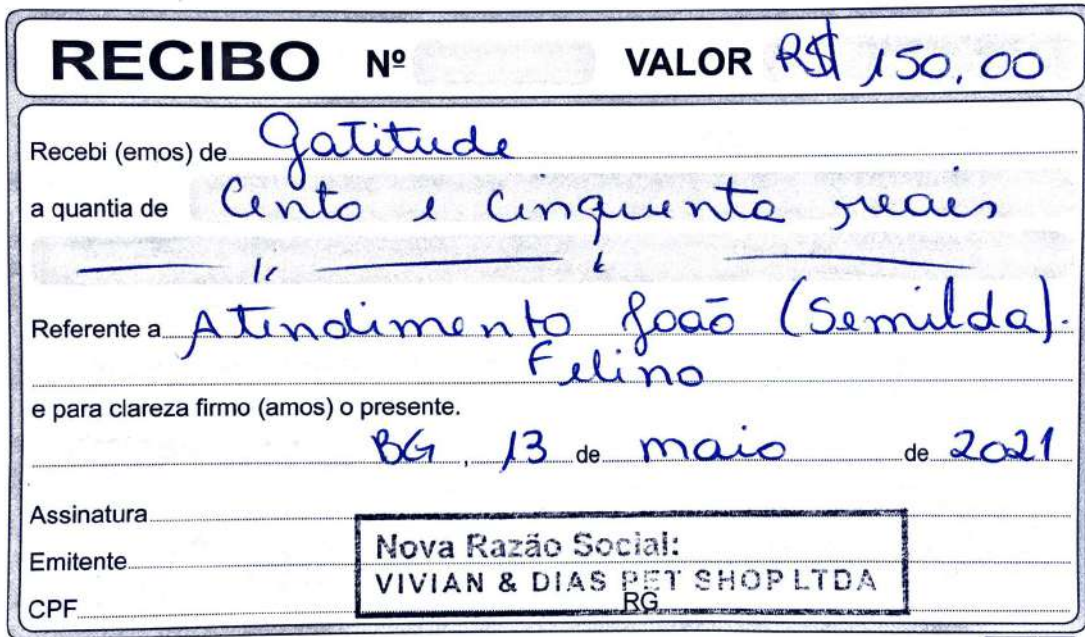 RECIBO Nº VALOR R$ 150,00
Recebi (emos) de Gatitude
a quantia de Cento e cinquenta reais
Referente a Atendimento João (Semilda).
Felino
e para clareza firmo (amos) o presente.
BG, 13 de maio de 2021
Assinatura
Emitente
CPF
Nova Razão Social:
VIVIAN & DIAS PET SHOP LTDA
RG